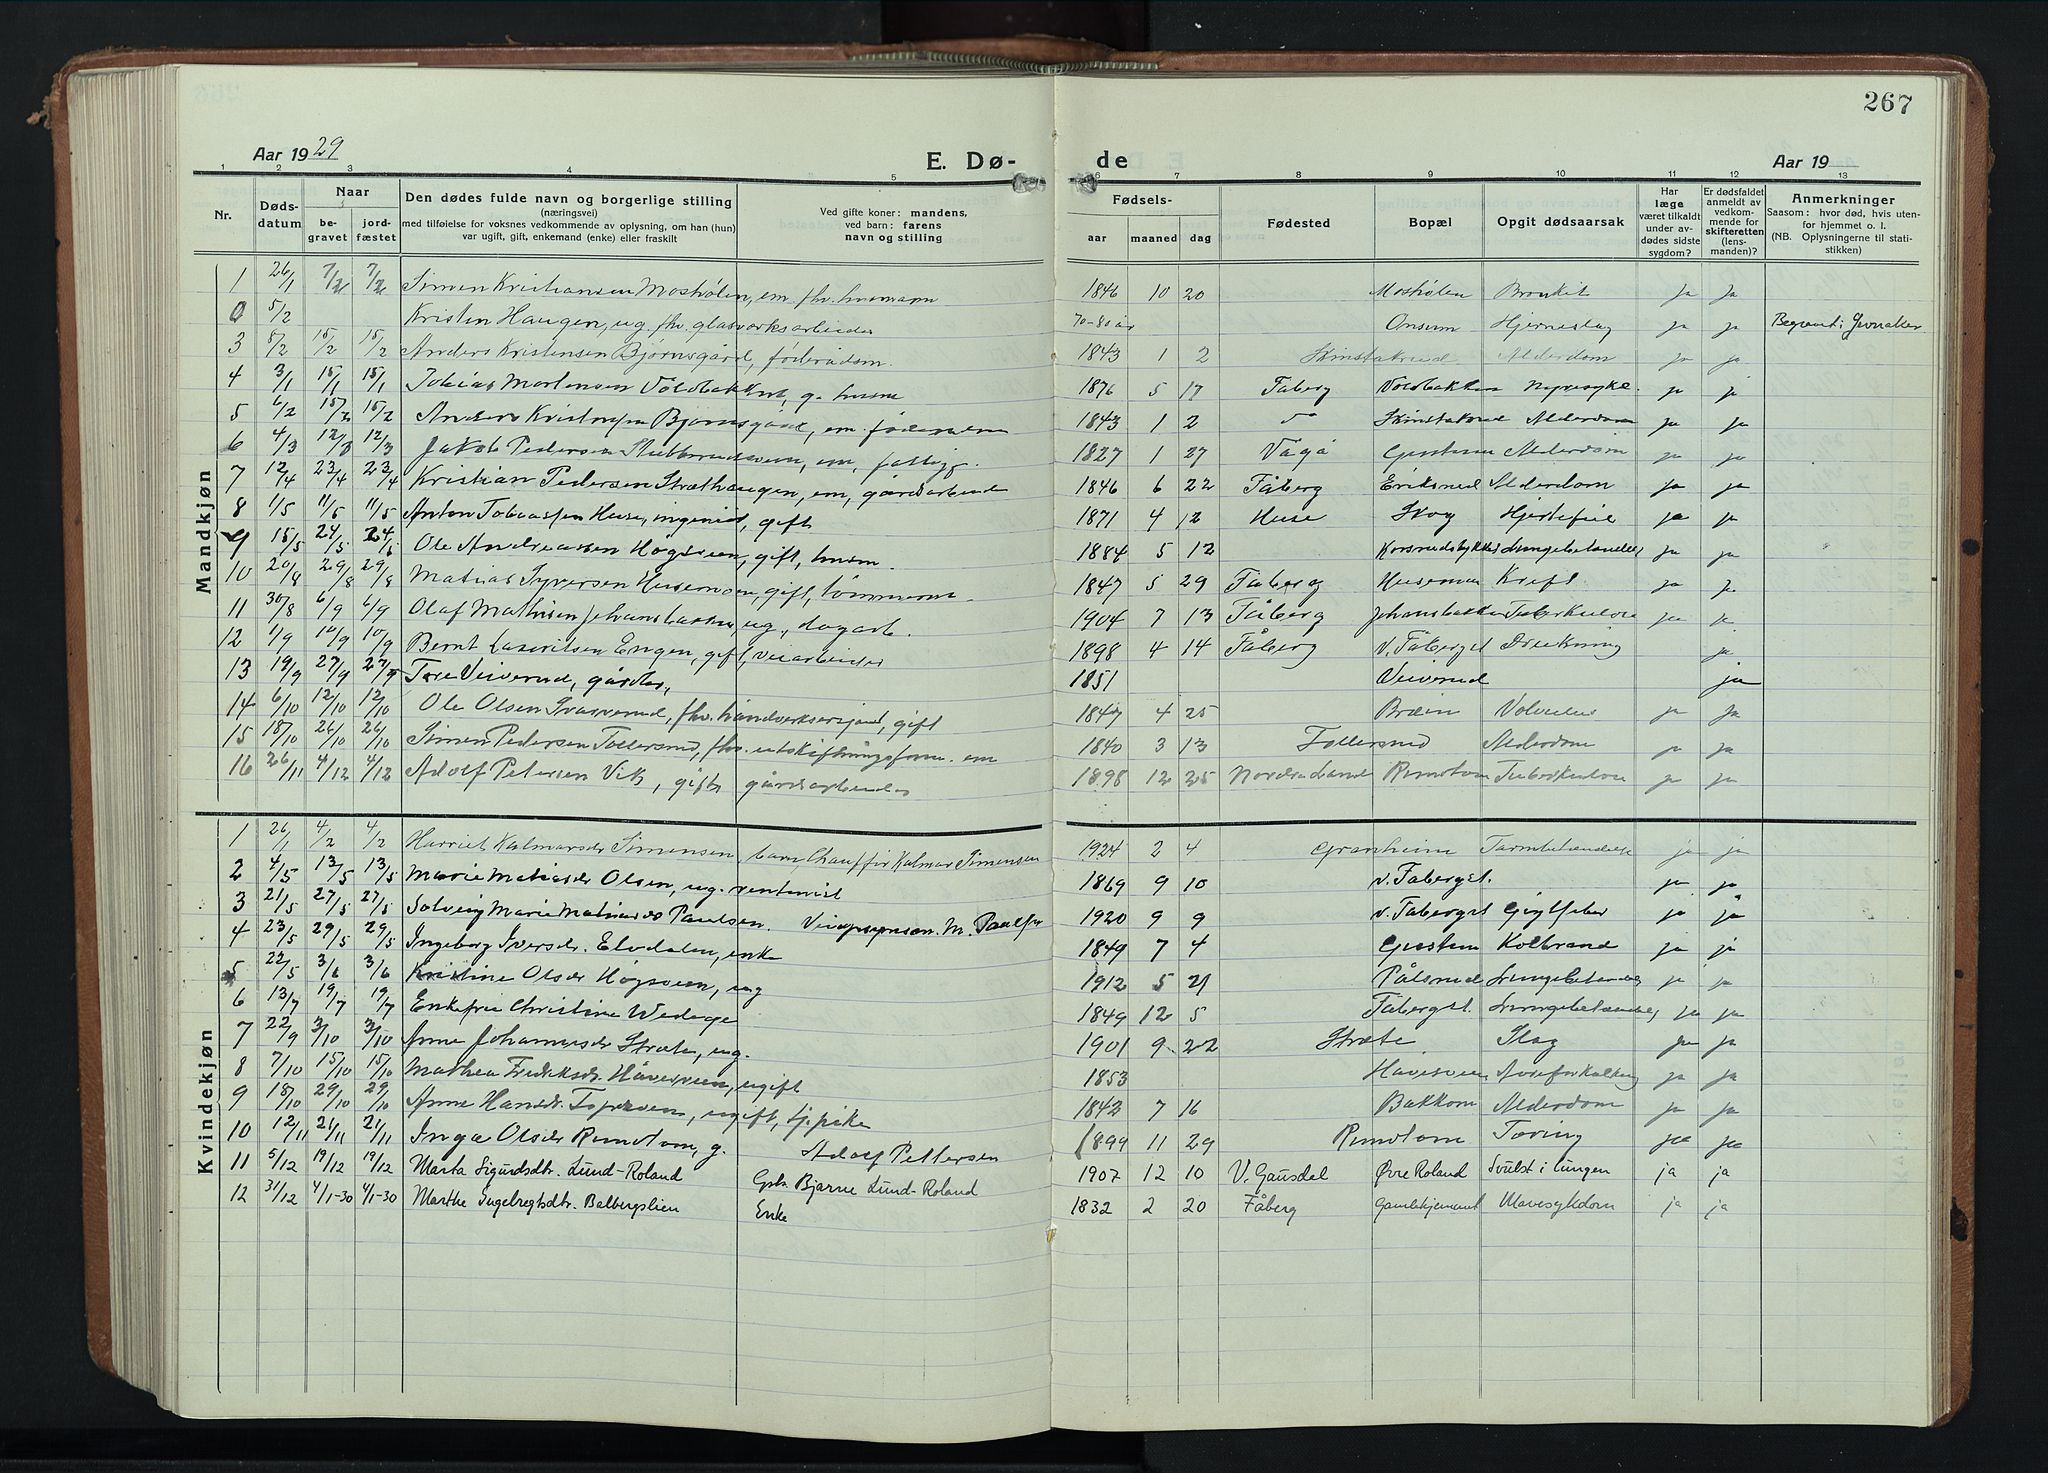 267
Aar 1929
E. Dø-
de
Aar 19
1 2 3 4 5 6 7 8 9 10 11 12 13
Nr.
Døds-
datum
Naar
be-
gravet
jord-
fæstet
Den dødes fulde navn og borgerlige stilling
(næringsvei)
med tilføielse for voksnes vedkommende av oplysning, om han (hun)
var ugift, gift, enkemand (enke) eller fraskilt
Ved gifte koner: mandens,
ved barn: farens
navn og stilling
Fødsels-
aar maaned dag
Fødested
Bopæl
Opgit dødsaarsak
Har
læge
været tilkaldt
under av-
dødes sidste
sygdom?
Er dødsfaldet
anmeldt av
vedkom-
mende for
skifteretten
(lens-
manden)?
Anmerkninger
Saasom: hvor død, hvis uten-
for hjemmet o. l.
(NB. Oplysningerne til stati-
stikken)
Mandkjøn
1 26/1 7/2 7/2 Simen Kristiansen Moshølen, em. fhv. husmann 1846 10 20 Moshølen Bronkit ja ja
0 5/2 Kristen Haugen, ug. fhv. glasverksarbeider 70-80 år Onsum Hjerneslag ja ja Begravet i Jevnaker
3 8/2 15/2 15/2 Anders Kristensen Bjørnsgård, føderådsm. 1843 1 2 Skinstakrud Alderdom ja ja
4 3/1 15/1 15/1 Tobias Mortensen Voldbakken, g. husm 1876 5 17 Faberg Voldbakken Nyresyke. ja ja
5 6/2 15/2 15/2 Anders Kristensen Bjørnsgård, em. 1843 1 2 Skinstakrud Alderdom ja ja
6 4/3 12/3 12/3 Jakob Pedersen em. fattigf. 1827 1 27 Vågå Alderdom ja ja
7 12/4 23/4 23/4 Kristian Pedersen Stræthaugen, em, gårdsarbeider 1846 6 22 Fåberg Eriksrud Alderdom ja ja
8 1/5 11/5 11/5 Anton Tobiassen Huse, ingeniør, gift 1871 4 12 Huse Skog Hjertefeil ja ja
9 15/5 24/5 24/5 Ole Andreassen Høgsveen, gift, husm. 1884 5 12 Lungebetændelse ja ja
10 20/8 29/8 29/8 Matias Syversen Husemoen, gift, tømmerm. 1847 5 29 Faberg Husemoen Kreft. ja ja
11 30/8 6/9 6/9 Olaf Mathisen Johansbakken, ug., dagarb. 1904 7 13 Fåberg Johansbakken Tuberkulose ja ja
12 1/9 10/9 10/9 Bernt Lauritsen Engen, gift, veiarbeider 1898 4 14 Fåberg v. Fåbergst Drukning ja
13 19/9 27/9 27/9 Tore Veiverud, gårdbr., 1851 Veiverud ja
14 6/10 12/10 12/10 Ole Olsen Svarverud, fhv. håndverkersvend, gift 1847 4 25 Bræin Volvulus ja ja
15 18/10 26/10 26/10 Simen Pedersen Tollersrud, fhv. utskiftningsform. em 1840 3 13 Tollersrud Alderdom ja ja
16 26/11 4/12 4/12 Adolf Petersen Vik, gift gårdsarbeider 1898 12 25 Nordre Land Rundtom Tuberkulose ja ja
Kvindekjøn
1 26/1 4/2 4/2 Harriet Kalmarsdr Simensen, barn Chauffør Kalmar Simensen 1924 2 4 Granheim Tarmbetændelse ja ja
2 4/5 13/5 13/5 Marie Matiasdr Olsen, ug. rentenist 1869 9 10 v. Fabergst. ja ja
3 21/5 27/5 27/5 Solveig Marie Matiasdr Paulsen. M. Paulsen 1920 9 9 v. Fabergst Gigtfeber ja ja
4 23/5 29/5 29/5 Ingeborg Iversdr. Elvdalen, enke 1849 7 4 Kolbrand ja ja
5 22/5 3/6 3/6 Kristine Olsdr Høgsveen, ug 1912 5 21 Pålsrud Lungebetændelse ja ja
6 13/7 19/7 19/7 Enkefru Christine Wedege 1849 12 5 Fåbergst. Lungebetændelse ja ja
7 22/9 3/10 3/10 Anne Johannesdr Stræte, ug. 1901 9 22 Stræte Slag ja ja
8 7/10 15/10 15/10 Mathea Fredriksdr. Håvesveen, ugift 1853 Håvesveen Aareforkalkning ja ja
9 18/10 29/10 29/10 Anne Hansdr. ugift, tj.pike 1842 7 16 Bakkom Alderdom ja ja
10 12/11 21/11 21/11 Inga Olsdr Rundtom, g. Adolf Pettersen 1899 11 29 Rundtom Tæring ja ja
11 5/12 19/12 19/12 Marta Sigurdsdtr. Lund-Roland Gbr. Bjarne Lund-Roland 1907 12 10 V. Gausdal Øvre Roland Svulst i lungen ja ja
12 31/12 4/1-30 4/1-30 Marthe Ingebregtsdtr. Balbergslien Enke 1832 2 20 Fåberg Gamlehjemmet Mavesykdom ja ja